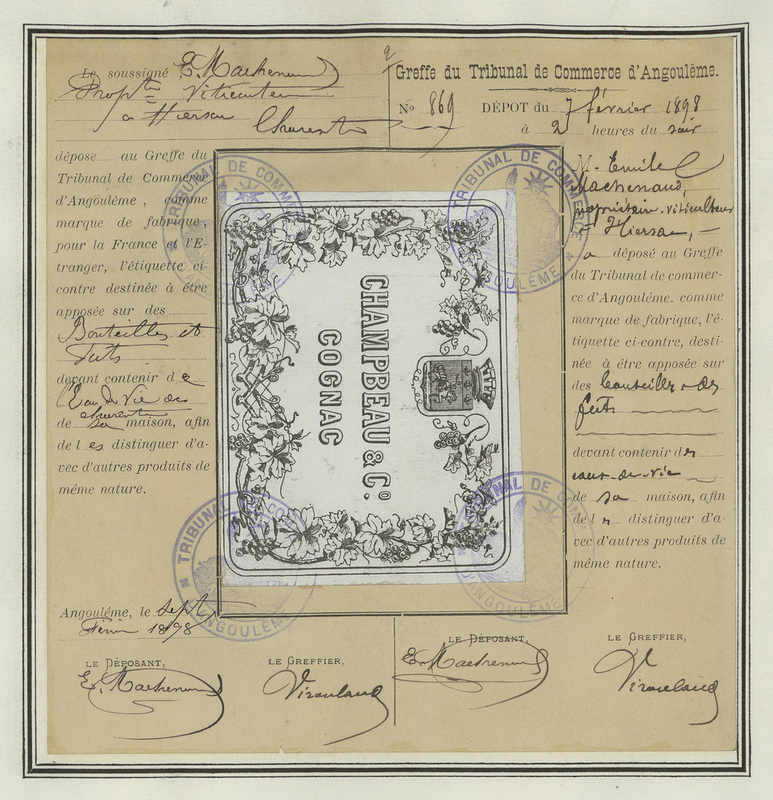 Le soussigné E. Machenaud
Prop^re Viticulteur
à Hiersac Charente
dépose au Greffe du
Tribunal de Commerce
d'Angoulême, comme
marque de fabrique,
pour la France et l'E-
tranger, l'étiquette ci-
contre destinée à être
apposée sur des
Bouteilles et
futs
devant contenir de
l'Eau de Vie des
Charente
de sa maison, afin
de les distinguer d'a-
vec d'autres produits de
même nature.
Angoulême, le sept
Février 1898
LE DÉPOSANT,
E. Machenaud
LE GREFFIER,
2
Greffe du Tribunal de Commerce d'Angoulême.
N° 869 DÉPOT du 7 février 1898
à 2 heures du soir
M. Emile
Machenaud,
propriétaire-viticulteur
à Hiersac,
a déposé au Greffe
du Tribunal de commer-
ce d'Angoulême. comme
marque de fabrique, l'é-
tiquette ci-contre, desti-
née à être apposée sur
des bouteilles & des
futs
devant contenir des
eaux-de-vie
de sa maison, afin
de les distinguer d'a-
vec d'autres produits de
même nature.
LE DÉPOSANT,
E. Machenaud
LE GREFFIER,
CHAMPBEAU & C°
COGNAC
TRIBUNAL DE COMMERCE
D'ANGOULÊME
TRIBUNAL DE COMMERCE
D'ANGOULÊME
TRIBUNAL DE COMMERCE
D'ANGOULÊME
TRIBUNAL DE COMMERCE
D'ANGOULÊME